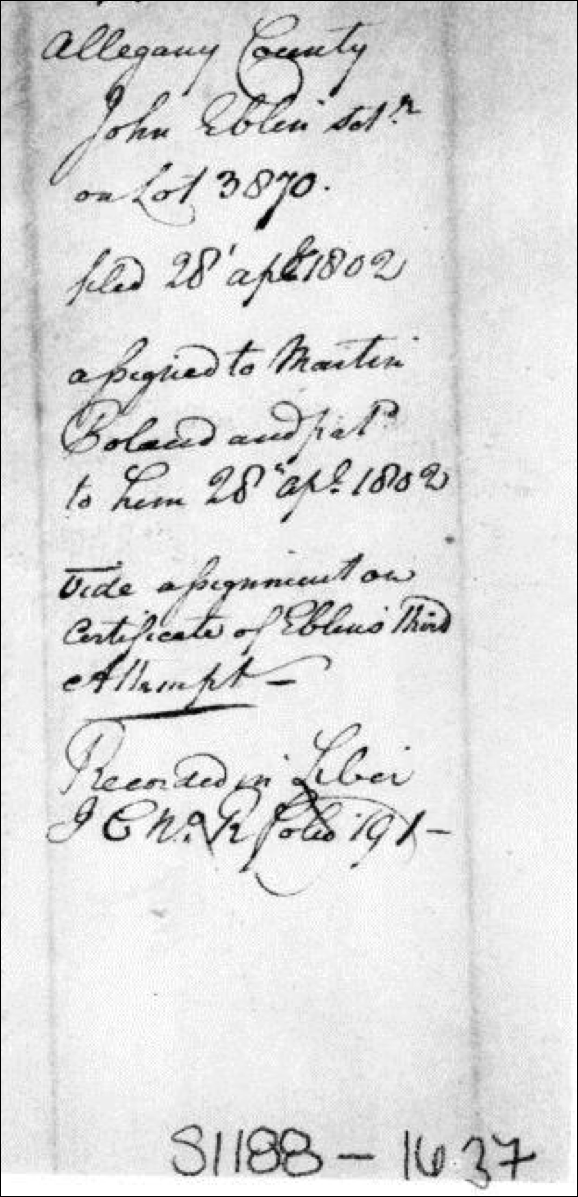 Allegany County
John Eblin Setr.
on Lot 3870.
filed 28' apl 1802
assigned to Martin
Boland and patd
to him 28' apl. 1802
Vide assignment on
Certificate of Eblins Third
Attempt —
Recorded in Liber
I C No. R folio 191 —
S1188 - 1637